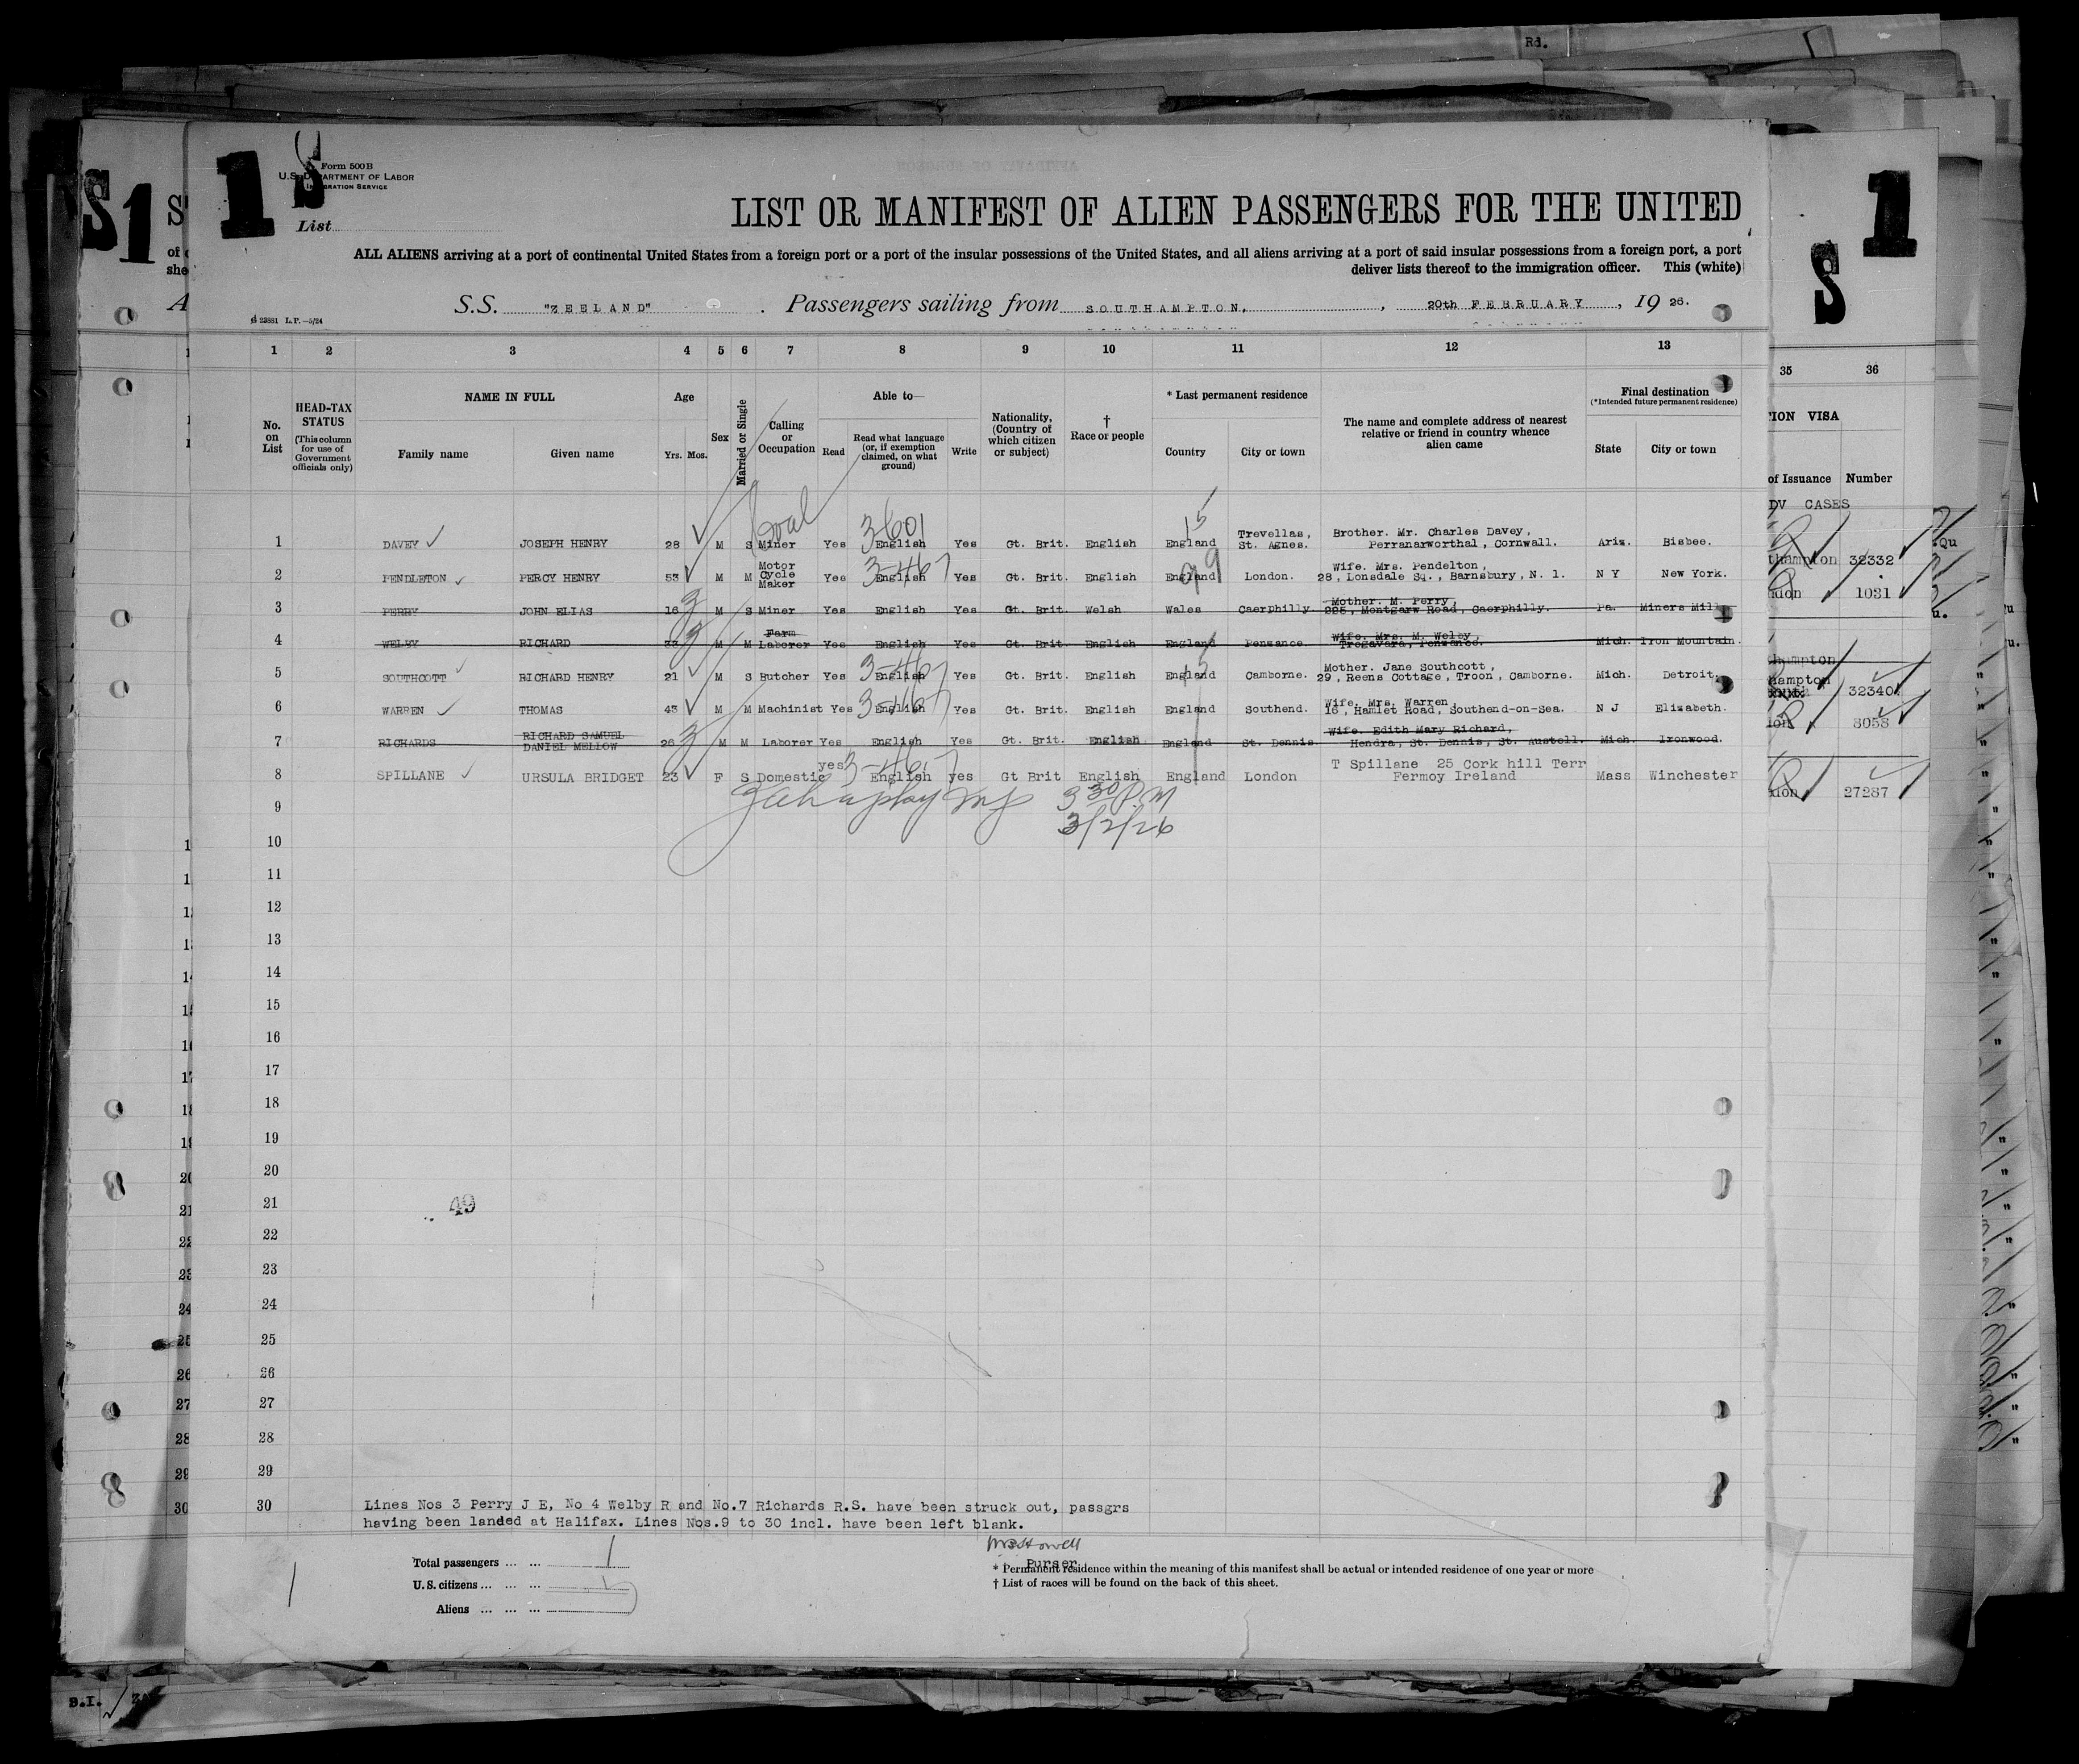 Rd.
1 S
Form 500 B
U.S. DEPARTMENT OF LABOR
IMMIGRATION SERVICE
List
LIST OR MANIFEST OF ALIEN PASSENGERS FOR THE UNITED
ALL ALIENS arriving at a port of continental United States from a foreign port or a port of the insular possessions of the United States, and all aliens arriving at a port of said insular possessions from a foreign port, a port
deliver lists thereof to the immigration officer. This (white)
S.S. "ZEELAND" . Passengers sailing from SOUTHAMPTON, , 20th FEBRUARY , 19 26.
1 2 3 4 5 6 7 8 9 10 11 12 13
No. on List
HEAD-TAX STATUS (This column for use of Government officials only)
NAME IN FULL
Family name Given name
Age
Yrs. Mos.
Sex
Married or Single
Calling or Occupation
Able to—
Read Read what language (or, if exemption claimed, on what ground) Write
Nationality, (Country of which citizen or subject)
† Race or people
* Last permanent residence
Country City or town
The name and complete address of nearest relative or friend in country whence alien came
Final destination
(*Intended future permanent residence)
State City or town
Coal 3601 15
1 DAVEY JOSEPH HENRY 28 M S Miner Yes English Yes Gt. Brit. English England Trevellas, St. Agnes. Brother. Mr. Charles Davey, Perranarworthal, Cornwall. Ariz. Bisbee.
3-467 99
2 PENDLETON PERCY HENRY 53 M M Motor Cycle Maker Yes English Yes Gt. Brit. English England London. Wife. Mrs. Pendelton, 28, Lonsdale Sq., Barnsbury, N. 1. N Y New York.
3 PERRY JOHN ELIAS 16 M S Miner Yes English Yes Gt. Brit. Welsh Wales Caerphilly Mother. M. Perry, 226, Montgarw Road, Caerphilly. Pa. Miners Mill
4 WELBY RICHARD M M Farm Laborer Yes English Yes Gt. Brit. English England Penzance Wife. Mrs. M. Welby, Tregavara, Penzance. Mich. Iron Mountain.
3-467
5 SOUTHCOTT RICHARD HENRY 21 M S Butcher Yes English Yes Gt. Brit. English England Camborne. Mother. Jane Southcott, 29, Reens Cottage, Troon, Camborne. Mich. Detroit.
3-467
6 WARREN THOMAS 43 M M Machinist Yes English Yes Gt. Brit. English England Southend. Wife. Mrs. Warren, 16, Hamlet Road, Southend-on-Sea. N J Elizabeth.
7 RICHARDS RICHARD SAMUEL DANIEL MELLOW 26 M M Laborer Yes English Yes Gt. Brit. English England St. Dennis Wife. Edith Mary Richard, Hendra, St. Dennis, St. Austell. Mich. Ironwood.
3-467
8 SPILLANE URSULA BRIDGET 23 F S Domestic yes English yes Gt Brit English England London T Spillane 25 Cork hill Terr Fermoy Ireland Mass Winchester
9
3 30 P.M
3/2/26
10
11
12
13
14
15
16
17
18
19
20
21 49
22
23
24
25
26
27
28
29
30 Lines Nos 3 Perry J E, No 4 Welby R and No.7 Richards R.S. have been struck out, passgrs
having been landed at Halifax. Lines Nos.9 to 30 incl. have been left blank.
Purser
Total passengers ... ...
U.S. citizens ... ... ...
Aliens ... ... ...
* Permanent residence within the meaning of this manifest shall be actual or intended residence of one year or more
† List of races will be found on the back of this sheet.
S1
1
S
35 36
ION VISA
of Issuance Number
DV CASES
thampton 32332
1031
hampton
hampton 32340
8058
27287